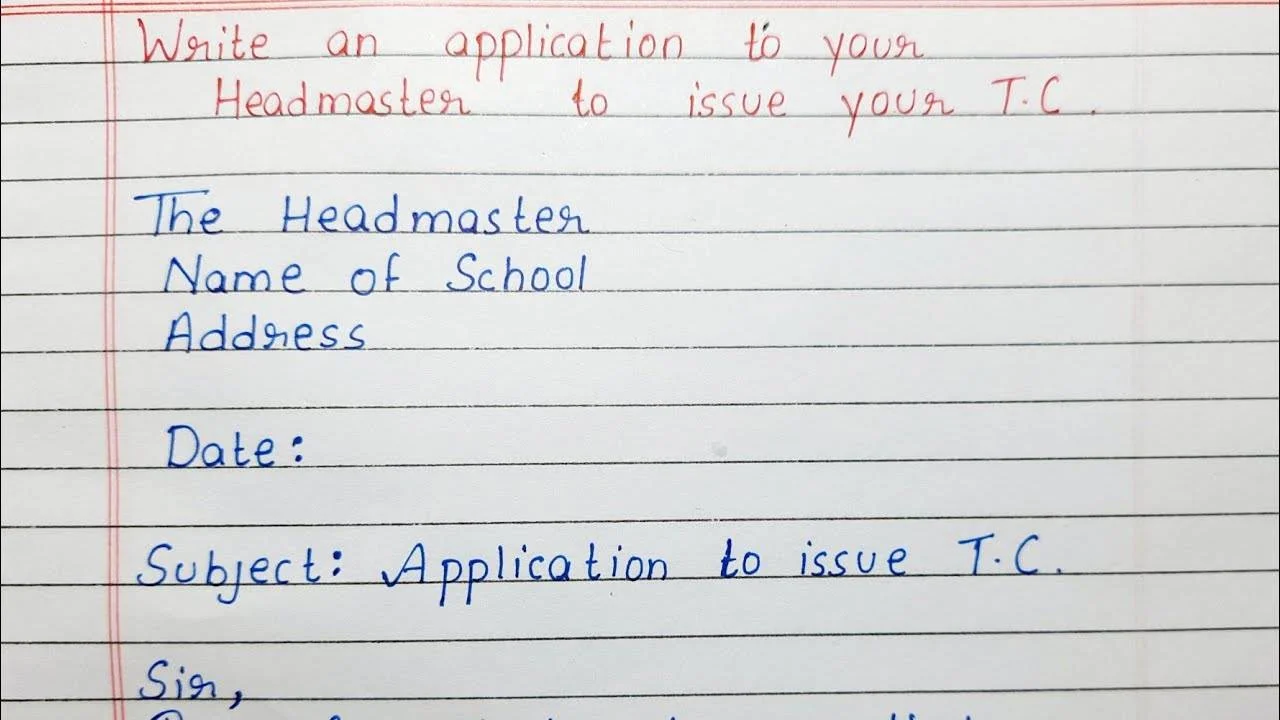 Write an application to your
Headmaster to issue your T.C.
The Headmaster
Name of School
Address
Date:
Subject: Application to issue T.C.
Sir,